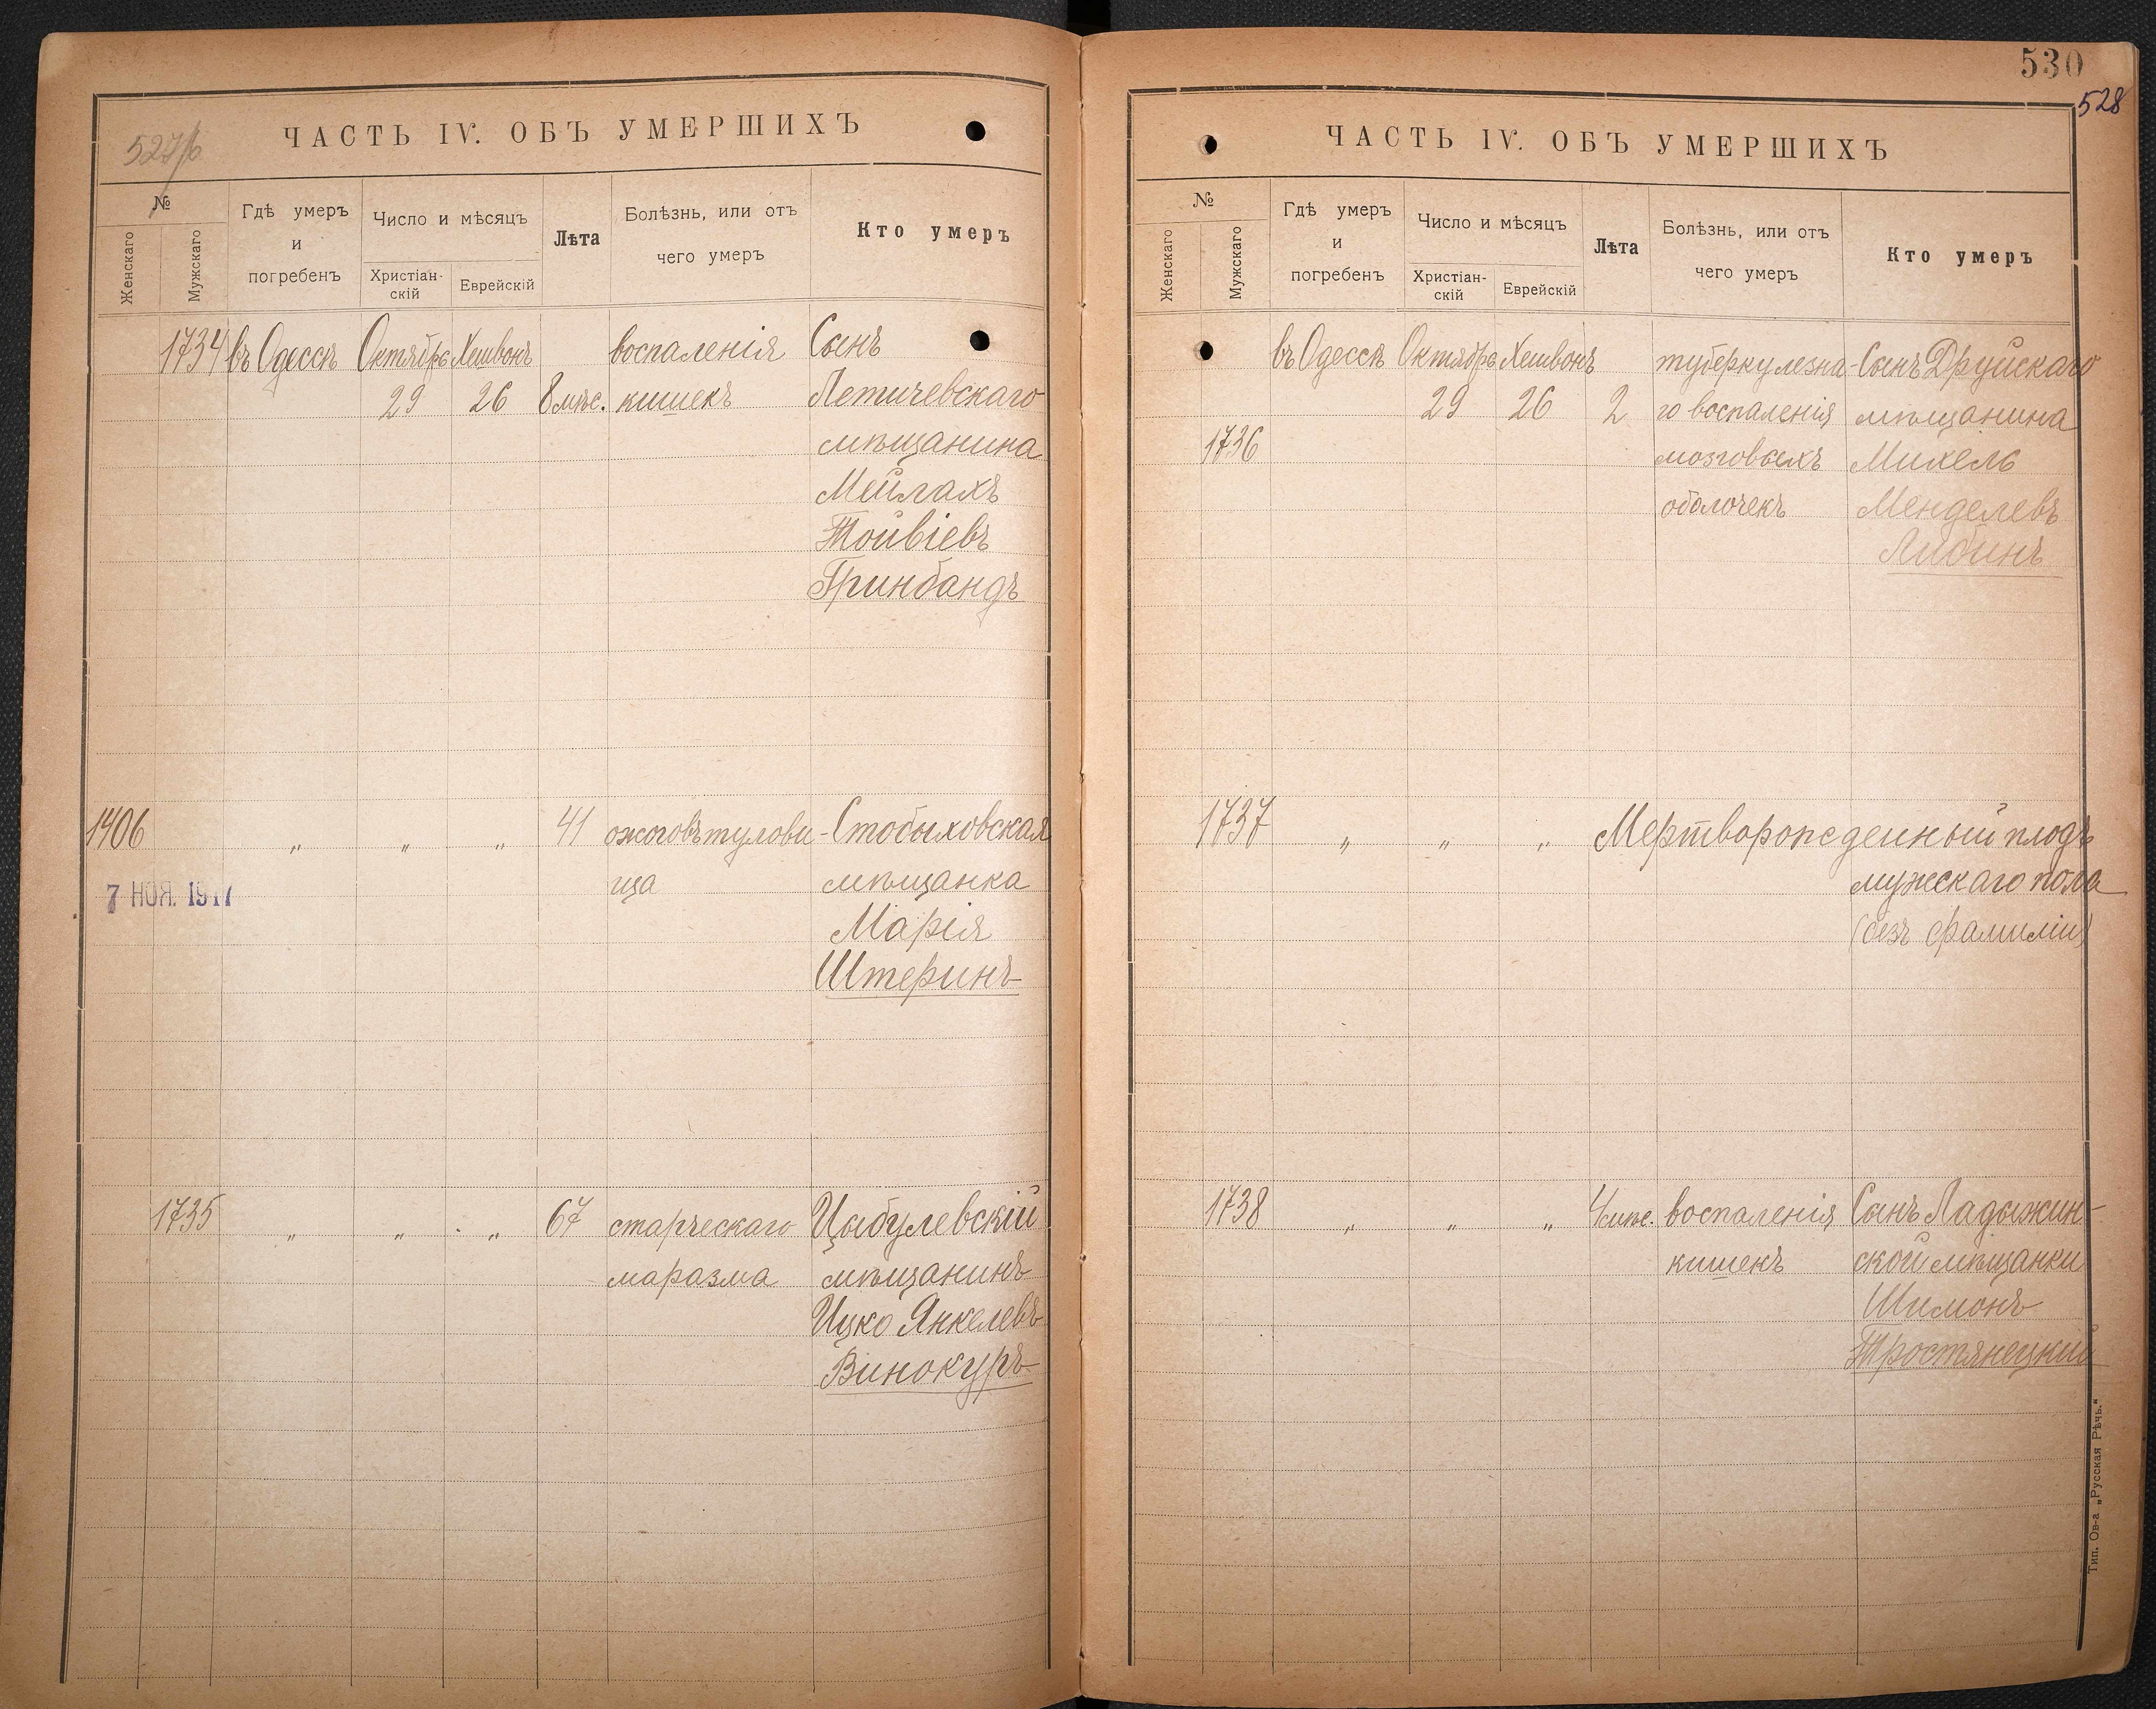 527/б
ЧАСТЬ IV. ОБЪ УМЕРШИХЪ
№
Женскаго
Мужскаго
Гдѣ умеръ
и
погребенъ
Число и мѣсяцъ
Христіан-
скій
Еврейскій
Лѣта
Болѣзнь, или отъ
чего умеръ
Кто умеръ
1734 въ Одессѣ Октября Хешвонъ воспаленія Сынъ
29 26 8 мѣс. кишекъ Летичевскаго
мѣщанина
Мейлахъ
Тойвіевъ
Гринбандъ
1406 „ „ „ 41 ожоговъ тулови- Стобыховская
7 НОЯ. 1917 ща мѣщанка
Марія
Штеринъ
1735 „ „ „ 67 старческаго Цыбулевскій
маразма мѣщанинъ
Ицко Янкелевъ
Винокуръ
530
528
ЧАСТЬ IV. ОБЪ УМЕРШИХЪ
№
Женскаго
Мужскаго
Гдѣ умеръ
и
погребенъ
Число и мѣсяцъ
Христіан-
скій
Еврейскій
Лѣта
Болѣзнь, или отъ
чего умеръ
Кто умеръ
въ Одессѣ Октября Хешвонъ туберкулезна- Сынъ Друйскаго
29 26 2 го воспаленія мѣщанина
1736 мозговыхъ Михель
оболочекъ Менделевъ
Либинъ
1737 „ „ „ Мертворожденный плодъ
мужескаго пола
(безъ фамиліи)
1738 „ „ „ 4 мѣс. воспаленія Сынъ Ладыжин-
кишекъ ской мѣщанки
Шимонъ
Тростянецкий
Тип. Ов-а „Русская Рѣчь.“